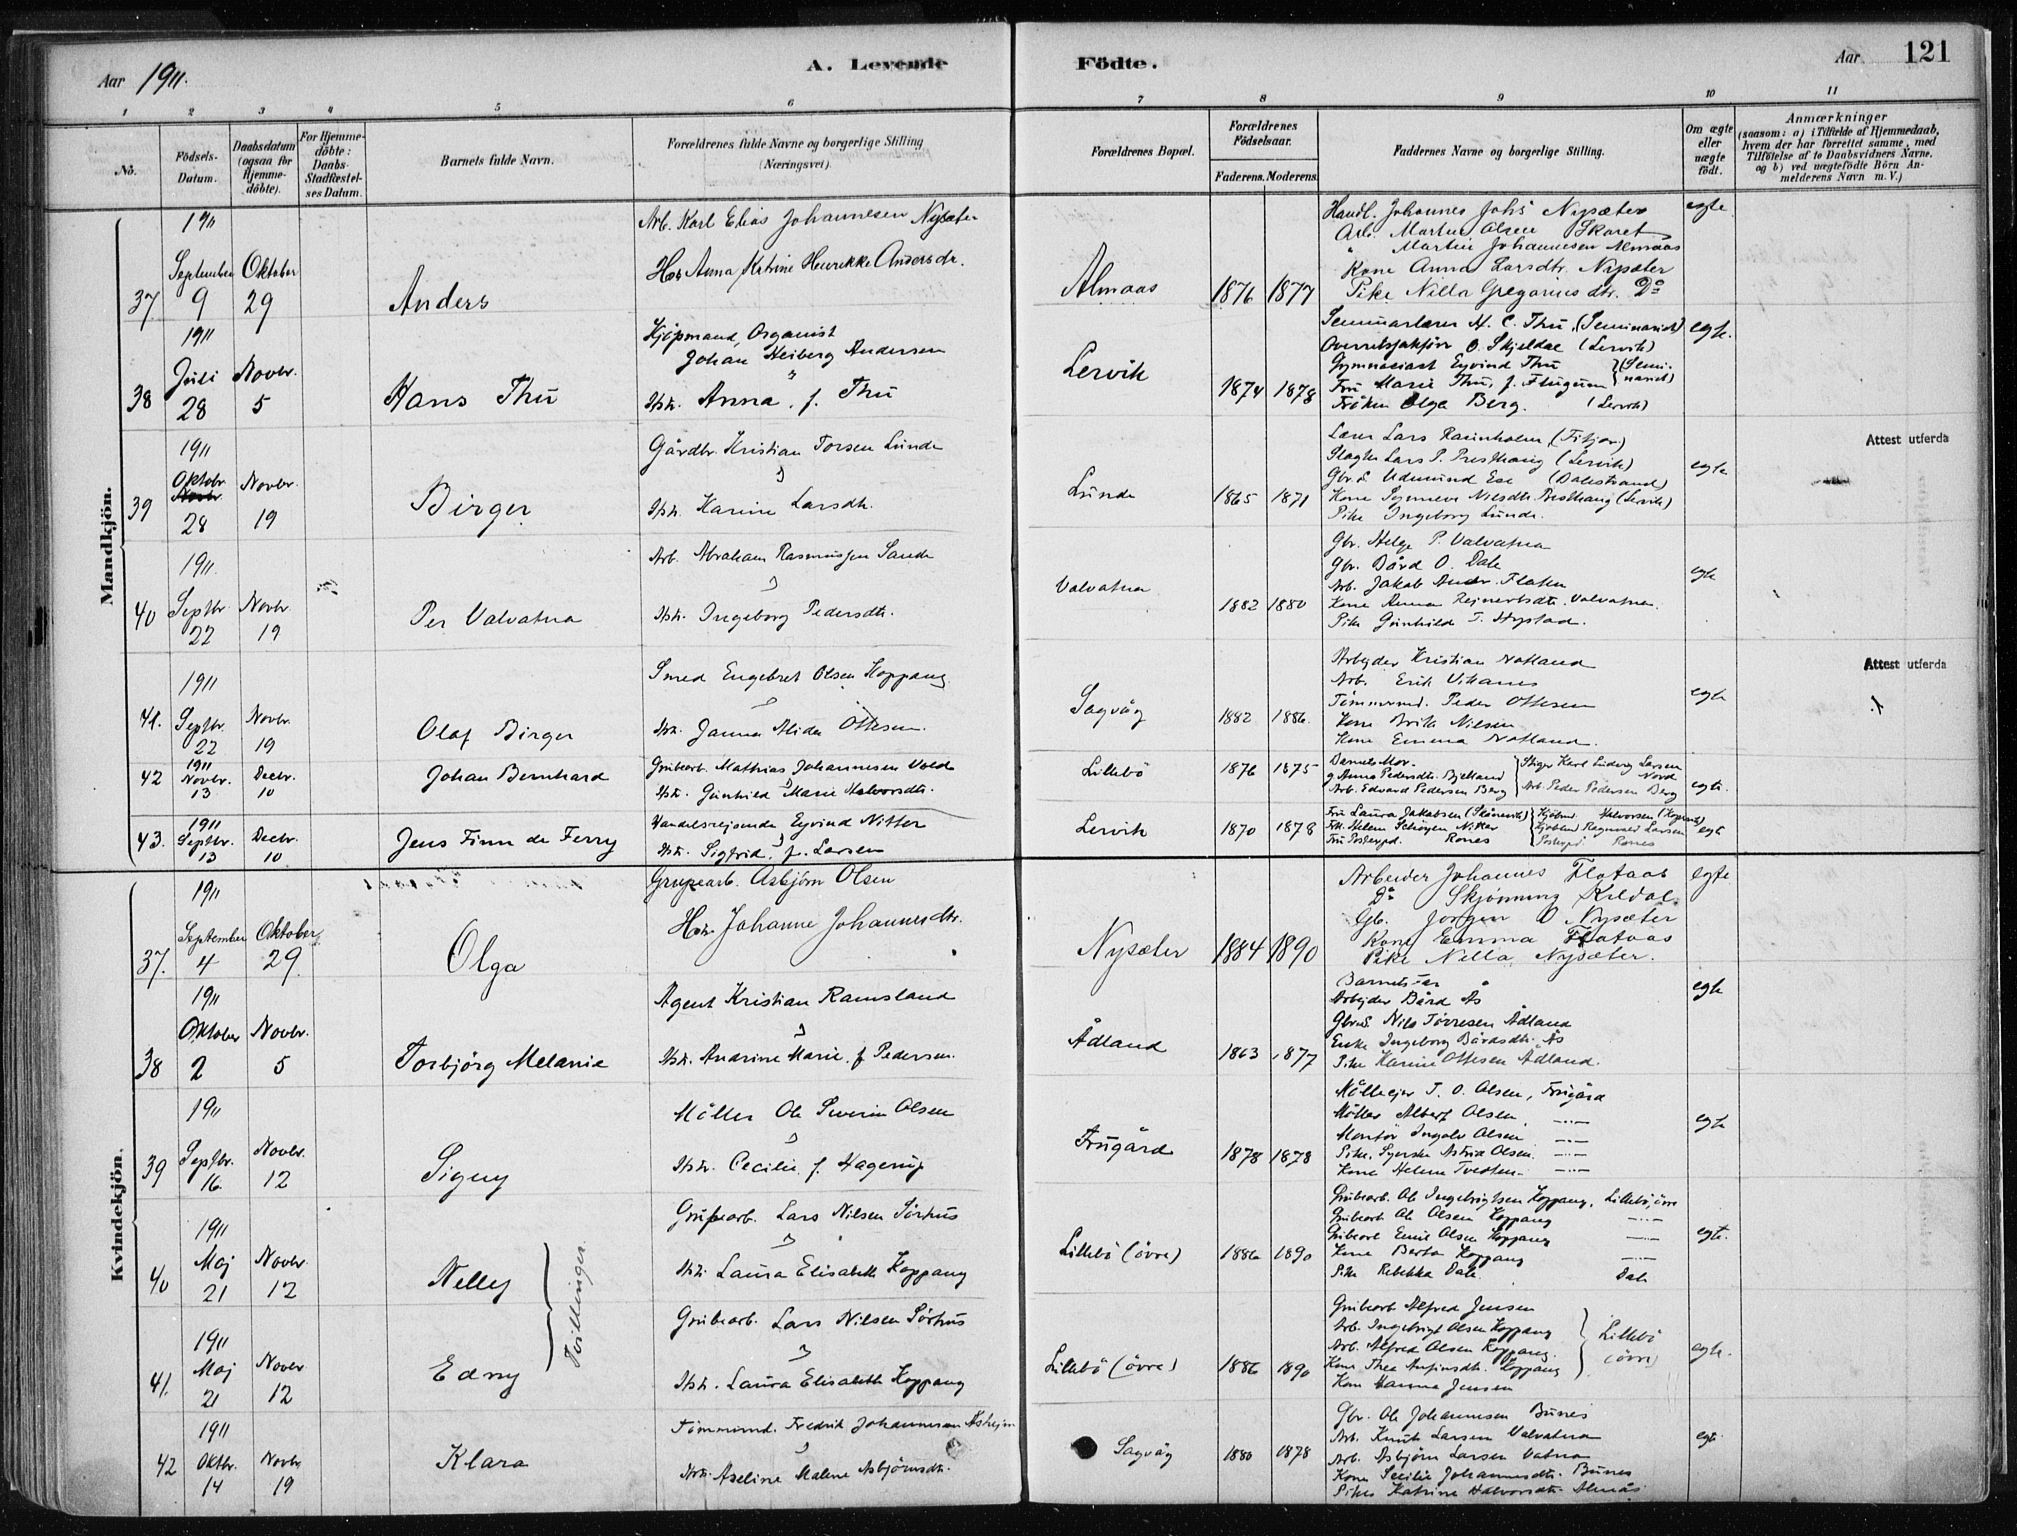 Aar 1911.
A. Levende Födte.
Aar 121
1 2 3 4 5 6 7 8 9 10 11
No.
Födsels-Datum.
Daabsdatum (ogsaa for Hjemmedöbte).
For Hjemmedöbte: Daabs-Stadfæstelses Datum.
Barnets fulde Navn.
Forældrenes fulde Navne og borgerlige Stilling (Næringsvei).
Forældrenes Bopæl.
Forældrenes Födselsaar.
Faderens. Moderens.
Faddernes Navne og borgerlige Stilling.
Om ægte eller uægte födt.
Anmærkninger
(saasom: a) i Tilfælde af Hjemmedaab, hvem der har forrettet samme, med Tilföielse af to Daabsvidners Navne, og b) ved uægtefödte Börn Anmelderens Navn m. V.)
Mandkjön.
37. 1911 September 9 Oktober 29
Anders
Arb. Karl Elias Johannesen Nysæter
Hs. Anna Katrine Henrikke Andersdr.
Almaas 1876 1877
Handl. Johannes Johs Nysæter
Arb. Martin Olsen Skaret
" Martin Johannesen Almaas
Kone Anna Larsdtr. Nysæter
Pike Nilla Gregoriusdtr. Do
egte
38 1911 Juli 28 Novbr. 5
Hans Thu
Kjöpmand, Organist
Johan Heiberg Andersen
Hstr. Anna, f. Thu
Lervik 1874 1878
Seminarlærer H. C. Thu, (Seminariet)
Overretssakförer O. Skjeldal (Lervik)
Gymnasiast Eyvind Thu
Fru Marie Thu, f. Flugum (Seminariet)
Fröken Olga Berg. (Lervik)
egte.
39 1911 Oktobr. 28 Novbr. 19
Birger
Gårdbr. Kristian Torsen Lunde
Hstr. Karine Larsdtr.
Lunde 1865 1871
Lærer Lars Rimholm (Fitjar)
Slagter Lars P. Presthaug (Lervik)
Gbr.s. Udmund Ese (Dalestrand)
Kone Synneve Nilsdtr. Presthaug (Lervik)
Pike Ingeborg Lunde.
egte
Attest utferda
40 1911. Septbr. 22 Novbr. 19
Per Valvatna
Arb. Abraham Rasmussen Sande
Hstr. Ingeborg Pedersdtr.
Valvatna 1882 1880
Gbr. Helge P. Valvatna
Gbr. Bård O. Dale
Arb. Jakob Andr. Flaten
Kone Anna Rejnertsdtr. Valvatna.
Pike Gunhild T. Hystad.
egte
41. 1911 Septbr. 22 Novbr. 19
Olaf Birger
Smed Engebret Olsen Hoppang
Hstr. Janna Alida Ottesen.
Sagvåg 1882 1886.
Arbejder Kristian Notland
Arb. Erik Vikanes
Tömmermd. Peder Ottesen
Kone Brita Nilsen
Kone Emma Notland.
egte
Attest utferda
42 1911 Novbr. 13 Decbr. 10
Johan Bernhard
Grubearb. Mathias Johannesen Vold
Hstr. Gunhild Marie Halvorsdtr.
Lillebö 1876 1875
Barnets Mor.
g. Anna Pedersdtr. Bjelland
Arb. Edvard Pedersen Berg
Stiger Karl Ludvig Larsen Nord
Arb. Peder Pedersen Berg
egte.
43. 1911 Septbr. 13 Decbr. 10
Jens Finn de Ferry
Handelsrejsende Eyvind Nitter
Hstr. Sigfrid, f. Larsen
Lervik 1870 1878
Fru Laura Jakobsen (Skånevik)
Frk. Helene Schöyen Nitter
Fru Posteksp. Rones
Kjöbmd. Halvorsen
Kjöbmd Ragnvald Larsen
Posteksp. Rones
egte
Kvindekjön.
37. 1911 September 4 Oktober 29
Olga
Grupearb. Asbjörn Olsen
Hs. Johanne Johannesdtr.
Nysæter 1884 1890
Arbeider Johannes Flataas
Do Skjönning Kildal
Gb. Jörgen O Nysæter
Kone Emma Flataas
Pike Nilla Nysæter.
egte
38 1911 Oktober 2 Novbr. 5
Torbjörg Melanie
Agent Kristian Ramsland
Hstr. Andrine Marie, f. Pedersen.
Ådland 1863 1877
Barnets far
Arbejder Bård Ås
Gbr.s. Nils Törresen Ådland
Enke Ingeborg Bårdsdtr. Ås
Pike Karine Ottesen Ådland.
egte
39 1911 Septbr. 16 Novbr. 12
Signy
Möller Ole Severin Olsen
Hstr. Cecilie, f. Hagerup
Frugård 1878 1878
Mölleejer T. O. Olsen, Frugård
Möller Albert Olsen, —"—
Montör Ingolv Olsen —"—
Pike, Syerske Astrid Olsen —"—
Kone Helene Tvedten —"—
egte
40 1911 Maj 21 Novbr. 12
Nelly
Tvillinger.
Grubearb. Lars Nilsen Sörhus
Hstr. Laura Elisabeth Hoppang
Lillebö (övre) 1886 1890
Grubearb. Ole Ingebrigtsen Hoppang, Lillebö, övre
Grubearb. Ole Olsen Hoppang —"—
Grubearb Emil Olsen Hoppang —"—
Kone Berta Hoppang —"—
Pike Rebekka Dale Dale
egte.
41. 1911 Maj 21 Novbr 12
Edny
Grubearb. Lars Nilsen Sörhus
Hstr. Laura Elisabeth Hoppang
Lillebö (övre) 1886 1890
Grubearb Alfred Jensen
Arb. Ingebrigt Olsen Hoppang
Arb. Alfred Olsen Hoppang.
Kone Thea Hoppang
Kone Hanna Jensen
Lillebö (övre)
egte.
42 1911 Oktbr. 14 Novbr 19
Klara
Tömmermd. Fredrik Johannesen
Hstr. Aseline Malene Asbjörnsdtr.
Sagvåg 1880 1878
Gbr. Ole Johannesen Bunes
Arb. Knut Larsen Valvatna
Arb. Asbjörn Larsen Vatna
Kone Secilie Johannesdtr. Bunes
Pike Katrine Halvorsdtr. Almås
egte